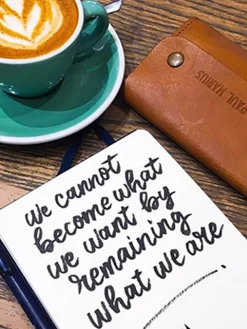 PAUL MARIUS
we cannot
become what
we want by
remaining
what we are.